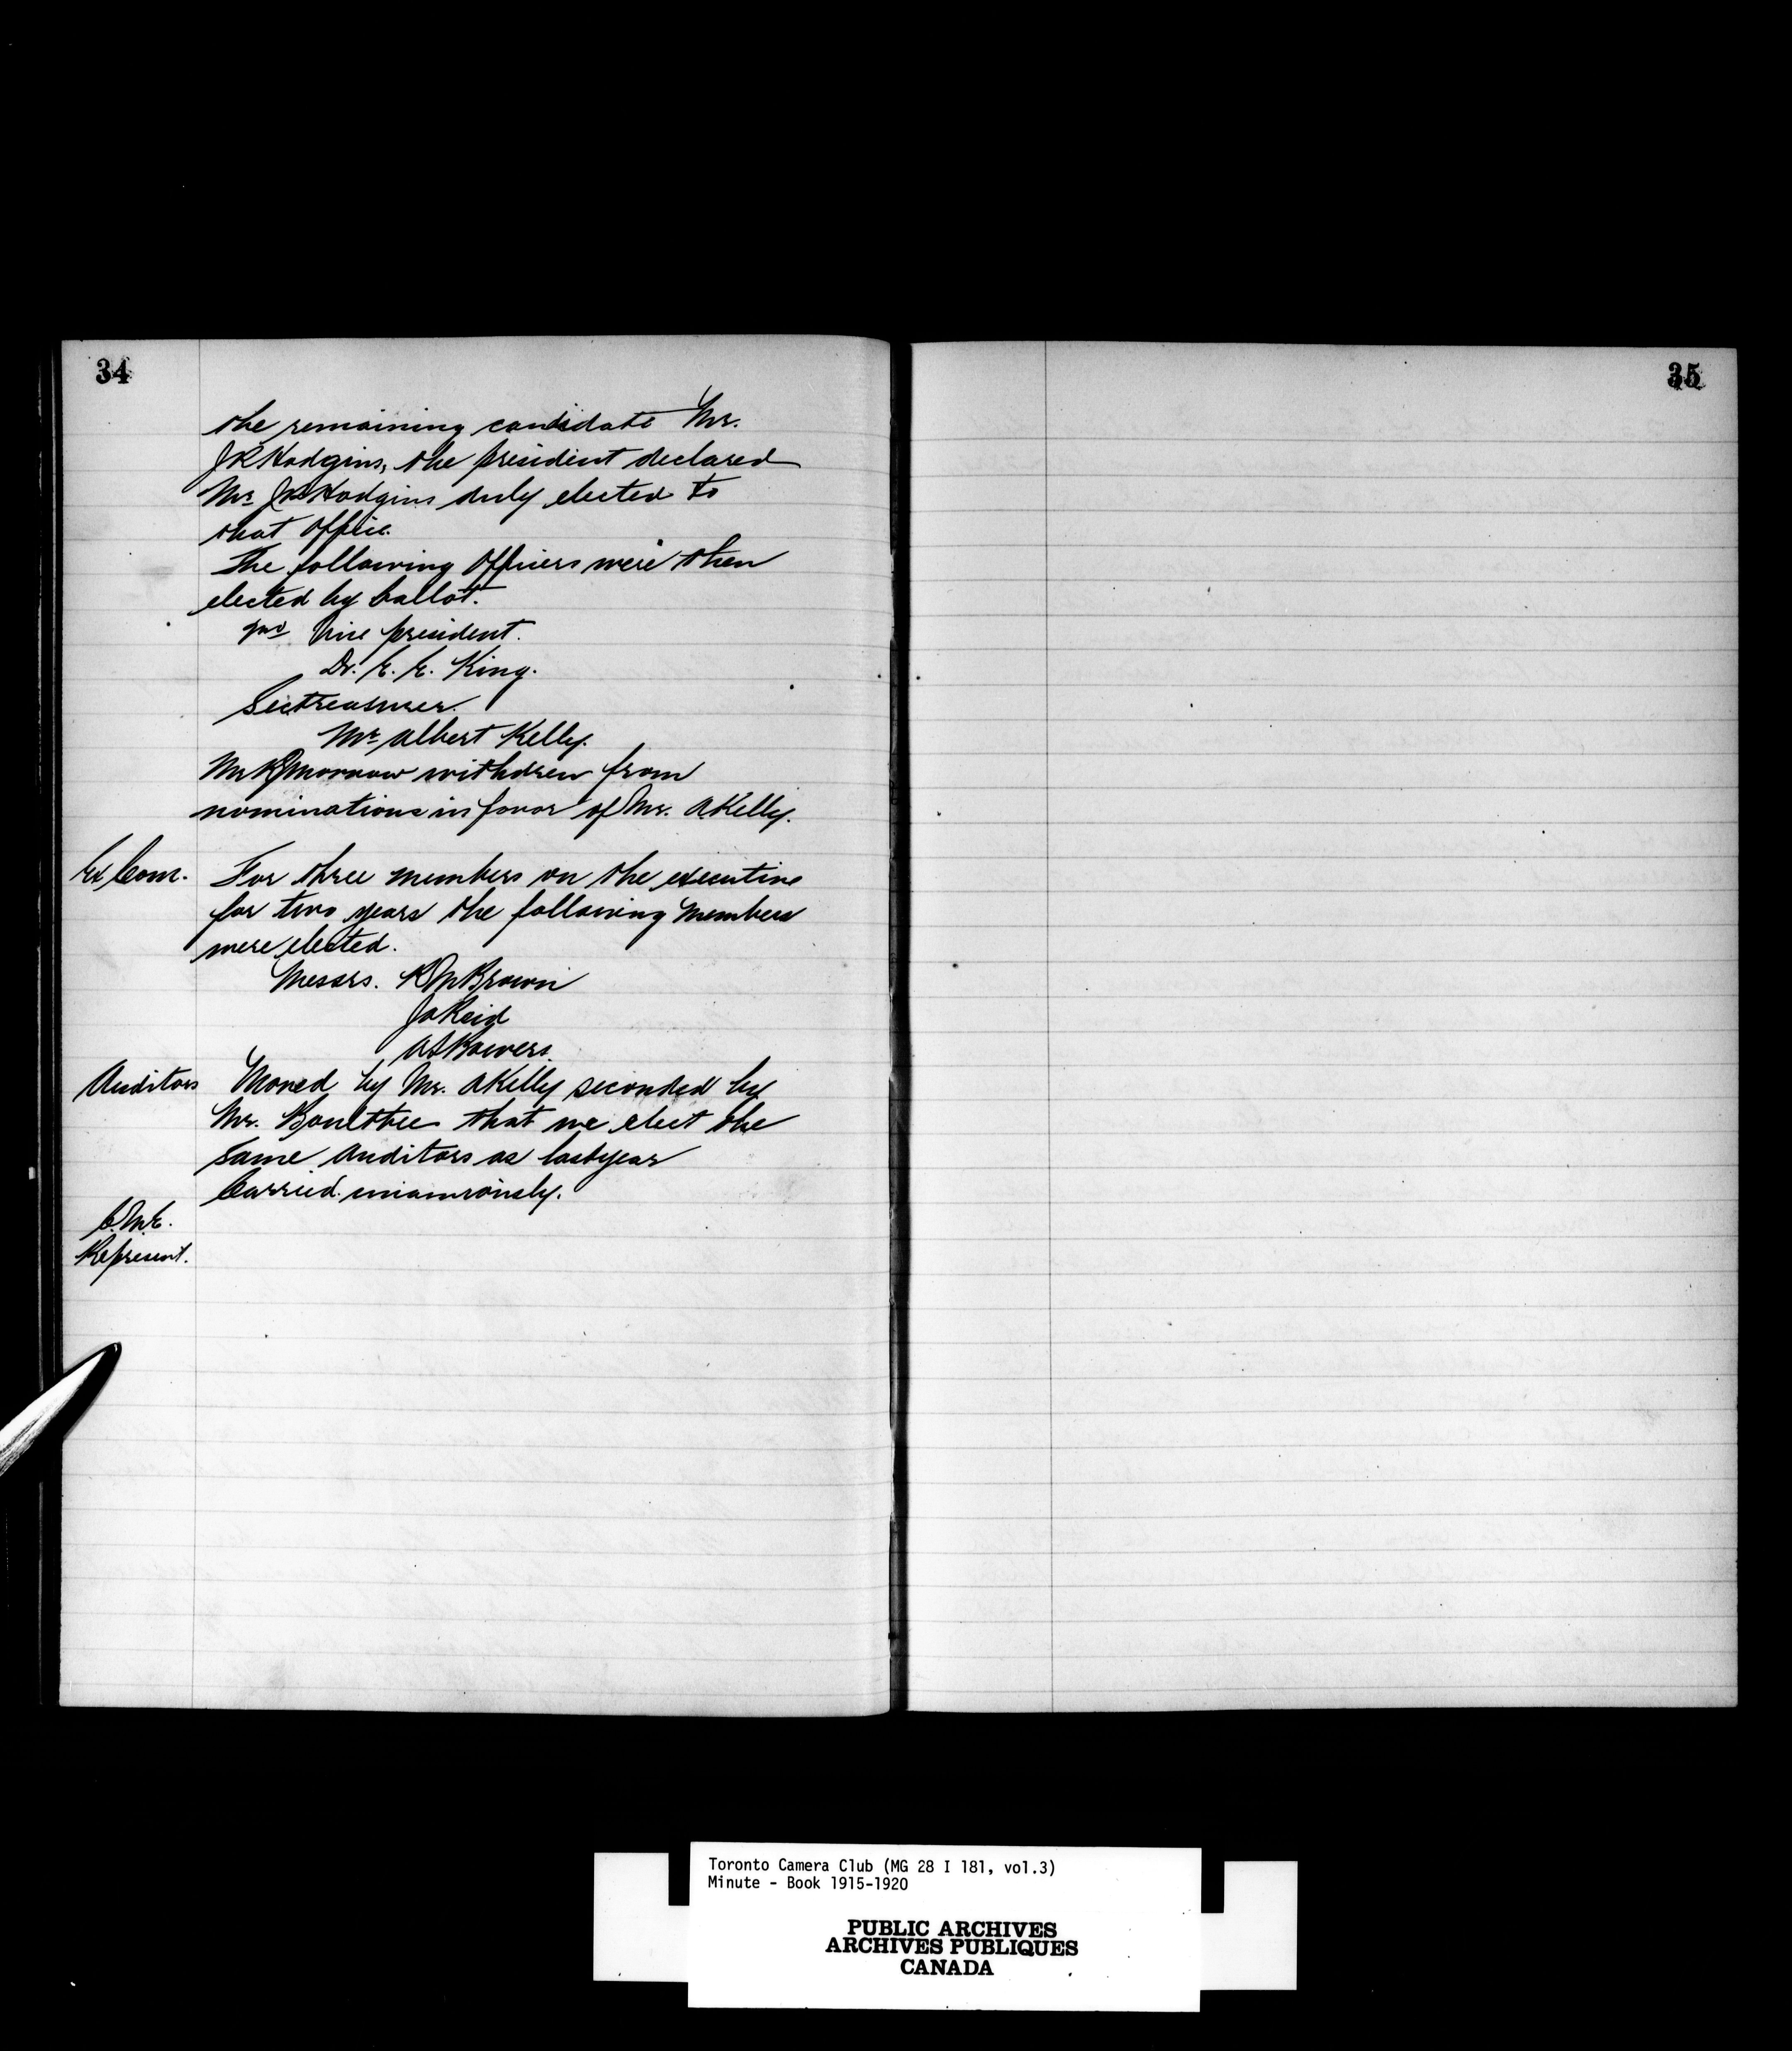 34
the remaining candidate Mr.
JR Hodgins, the president declared
Mr JR Hodgins duly elected to
that office.
The following officers were then
elected by ballot.
2nd Vice president.
Dr. E. E. King.
Sectreasurer.
Mr Albert Kelly.
Mr Morrow withdrew from
nominations in favor of Mr. A Kelly.
Ex Com. For three members on the executive
for two years the following members
were elected.
Messrs. R M Brown
Ja Reid
AS Bowers.
Auditors Moved by Mr. A Kelly seconded by
Mr. Boultbee that we elect the
same auditors as last year
Carried unianiously.
C.N.E.
Represent.
35
Toronto Camera Club (MG 28 I 181, vol.3)
Minute - Book 1915-1920
PUBLIC ARCHIVES
ARCHIVES PUBLIQUES
CANADA